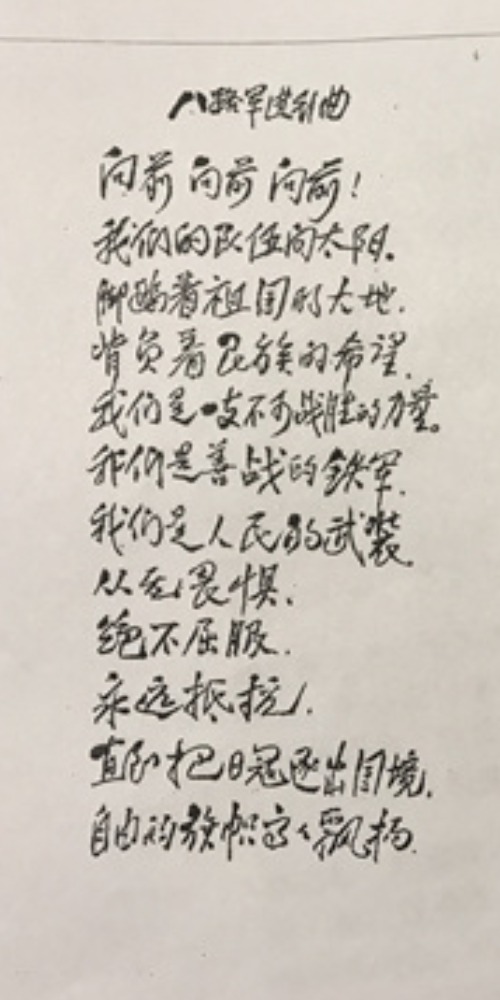 八路军进行曲
向前 向前 向前!
我们的队伍向太阳.
脚踏着祖国的大地.
背负着民族的希望.
我们是一支不可战胜的力量。
我们是善战的铁军.
我们是人民的武装.
从无畏惧.
绝不屈服.
永远抵抗.
直到把日寇逐出国境.
自由的旗帜高々飘扬.